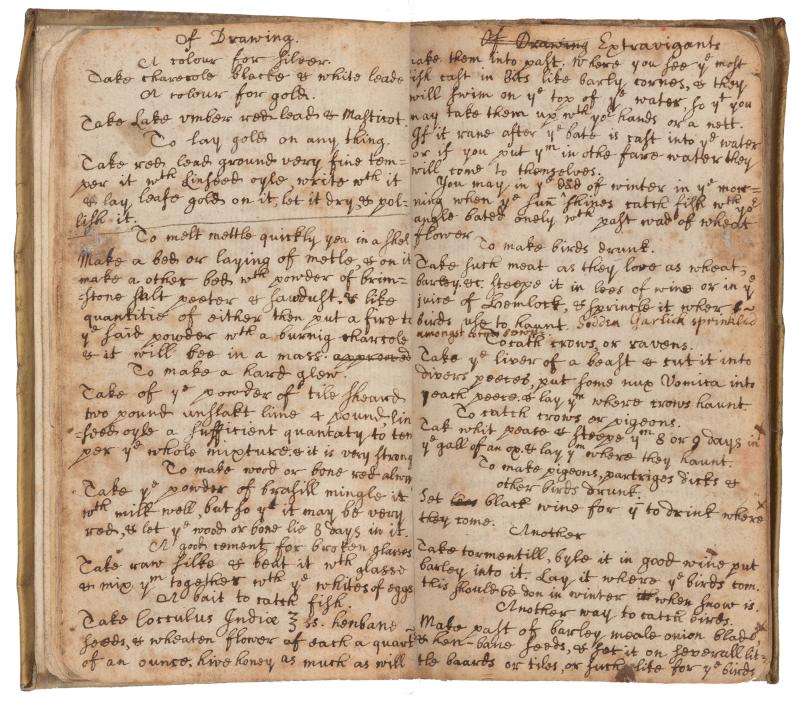 Of Drawing.
A colour for silver.
Take charecole blacke & white leade
A colour for gold.
Take Lake vmber red lead & Masticot
To lay gold on any thing.
Take red lead ground very fine tem=
per it wth Linseed oyle write wth it
& lay leafe gold on it, let it dry, & pol-
lish it.
To melt mettle quickly yea in a shel
Make a bed or laying of metle, & on it
make a other bed wth powder of brim-
stone salt peeter & sawdust, & like
quantitie of either then put a fire to
ye said powder wth a burnig charcole
& it will bee in a mass.
To make a hard glew.
Take of ye powder of tile sheard
two pound unslakt lime 4 pound, lin
-seed oyle a sufficient quantaty to tem
per ye whole mixture, & it is very strong
To make wood or bone red alway
Take ye powder of brasill mingle it
wth milk well, but so yt it may be very
red, & let ye wood or bone lie 8 days in it.
A good cement for broken glasses
Take raw silke & beat it wth glasse
& mix ym together wth ye whites of eggs
A bait to catch fish.
Take Cocculus Indiæ ʒ ss. henbane
seeds, & wheaten flower of each a quart
of an ounce, hive honey as much as will
Of Drawing Extravigants
make them into past. Where you see ye most
fish cast in bits like barly cornes, & they
will swim on ye top of ye water, so yt you
may take them up wth yor hands or a nett.
If it rane after ye bate is cast into ye water
or if you put ym in othe faire water they
will come to themselves.
You may in ye dead of winter in ye mor=
ning when ye sun shines catch fish wth yor
angle bated onely wth past mad of wheat
flower
To make birds drunk.
Take such meat as they love as wheat,
barley, &c. steepe it in lees of wine or in ye
juice of Hemlock, & sprinkle it wher
birds use to haunt. Sodden Garlick sprinkled
amongst
To catch crows or ravens.
Take ye liver of a beast & cut it into
divers peeces, put some nux Vomita into
each peece, & lay ym where crows haunt.
To catch crows or pigeons.
Tak whit pease & steepe ym 8 or 9 days in
ye gall of an ox. & lay ym where they haunt.
To make pigeons, partriges dicks &
other birds drunk.
Set black wine for ym to drink where
they come.
Another
Take tormentill, byle it in good wine put
barley into it. Lay it where ye birds com.
this should be don in winter when snow is.
Another way to catch birds.
Make past of barley meale onion blads,
& hen-bane seeds, & set it on severall lit=
tle baards or tiles, or such like for ye birds